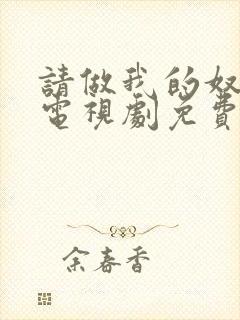 請做我的奴
電視劇免費
余春香